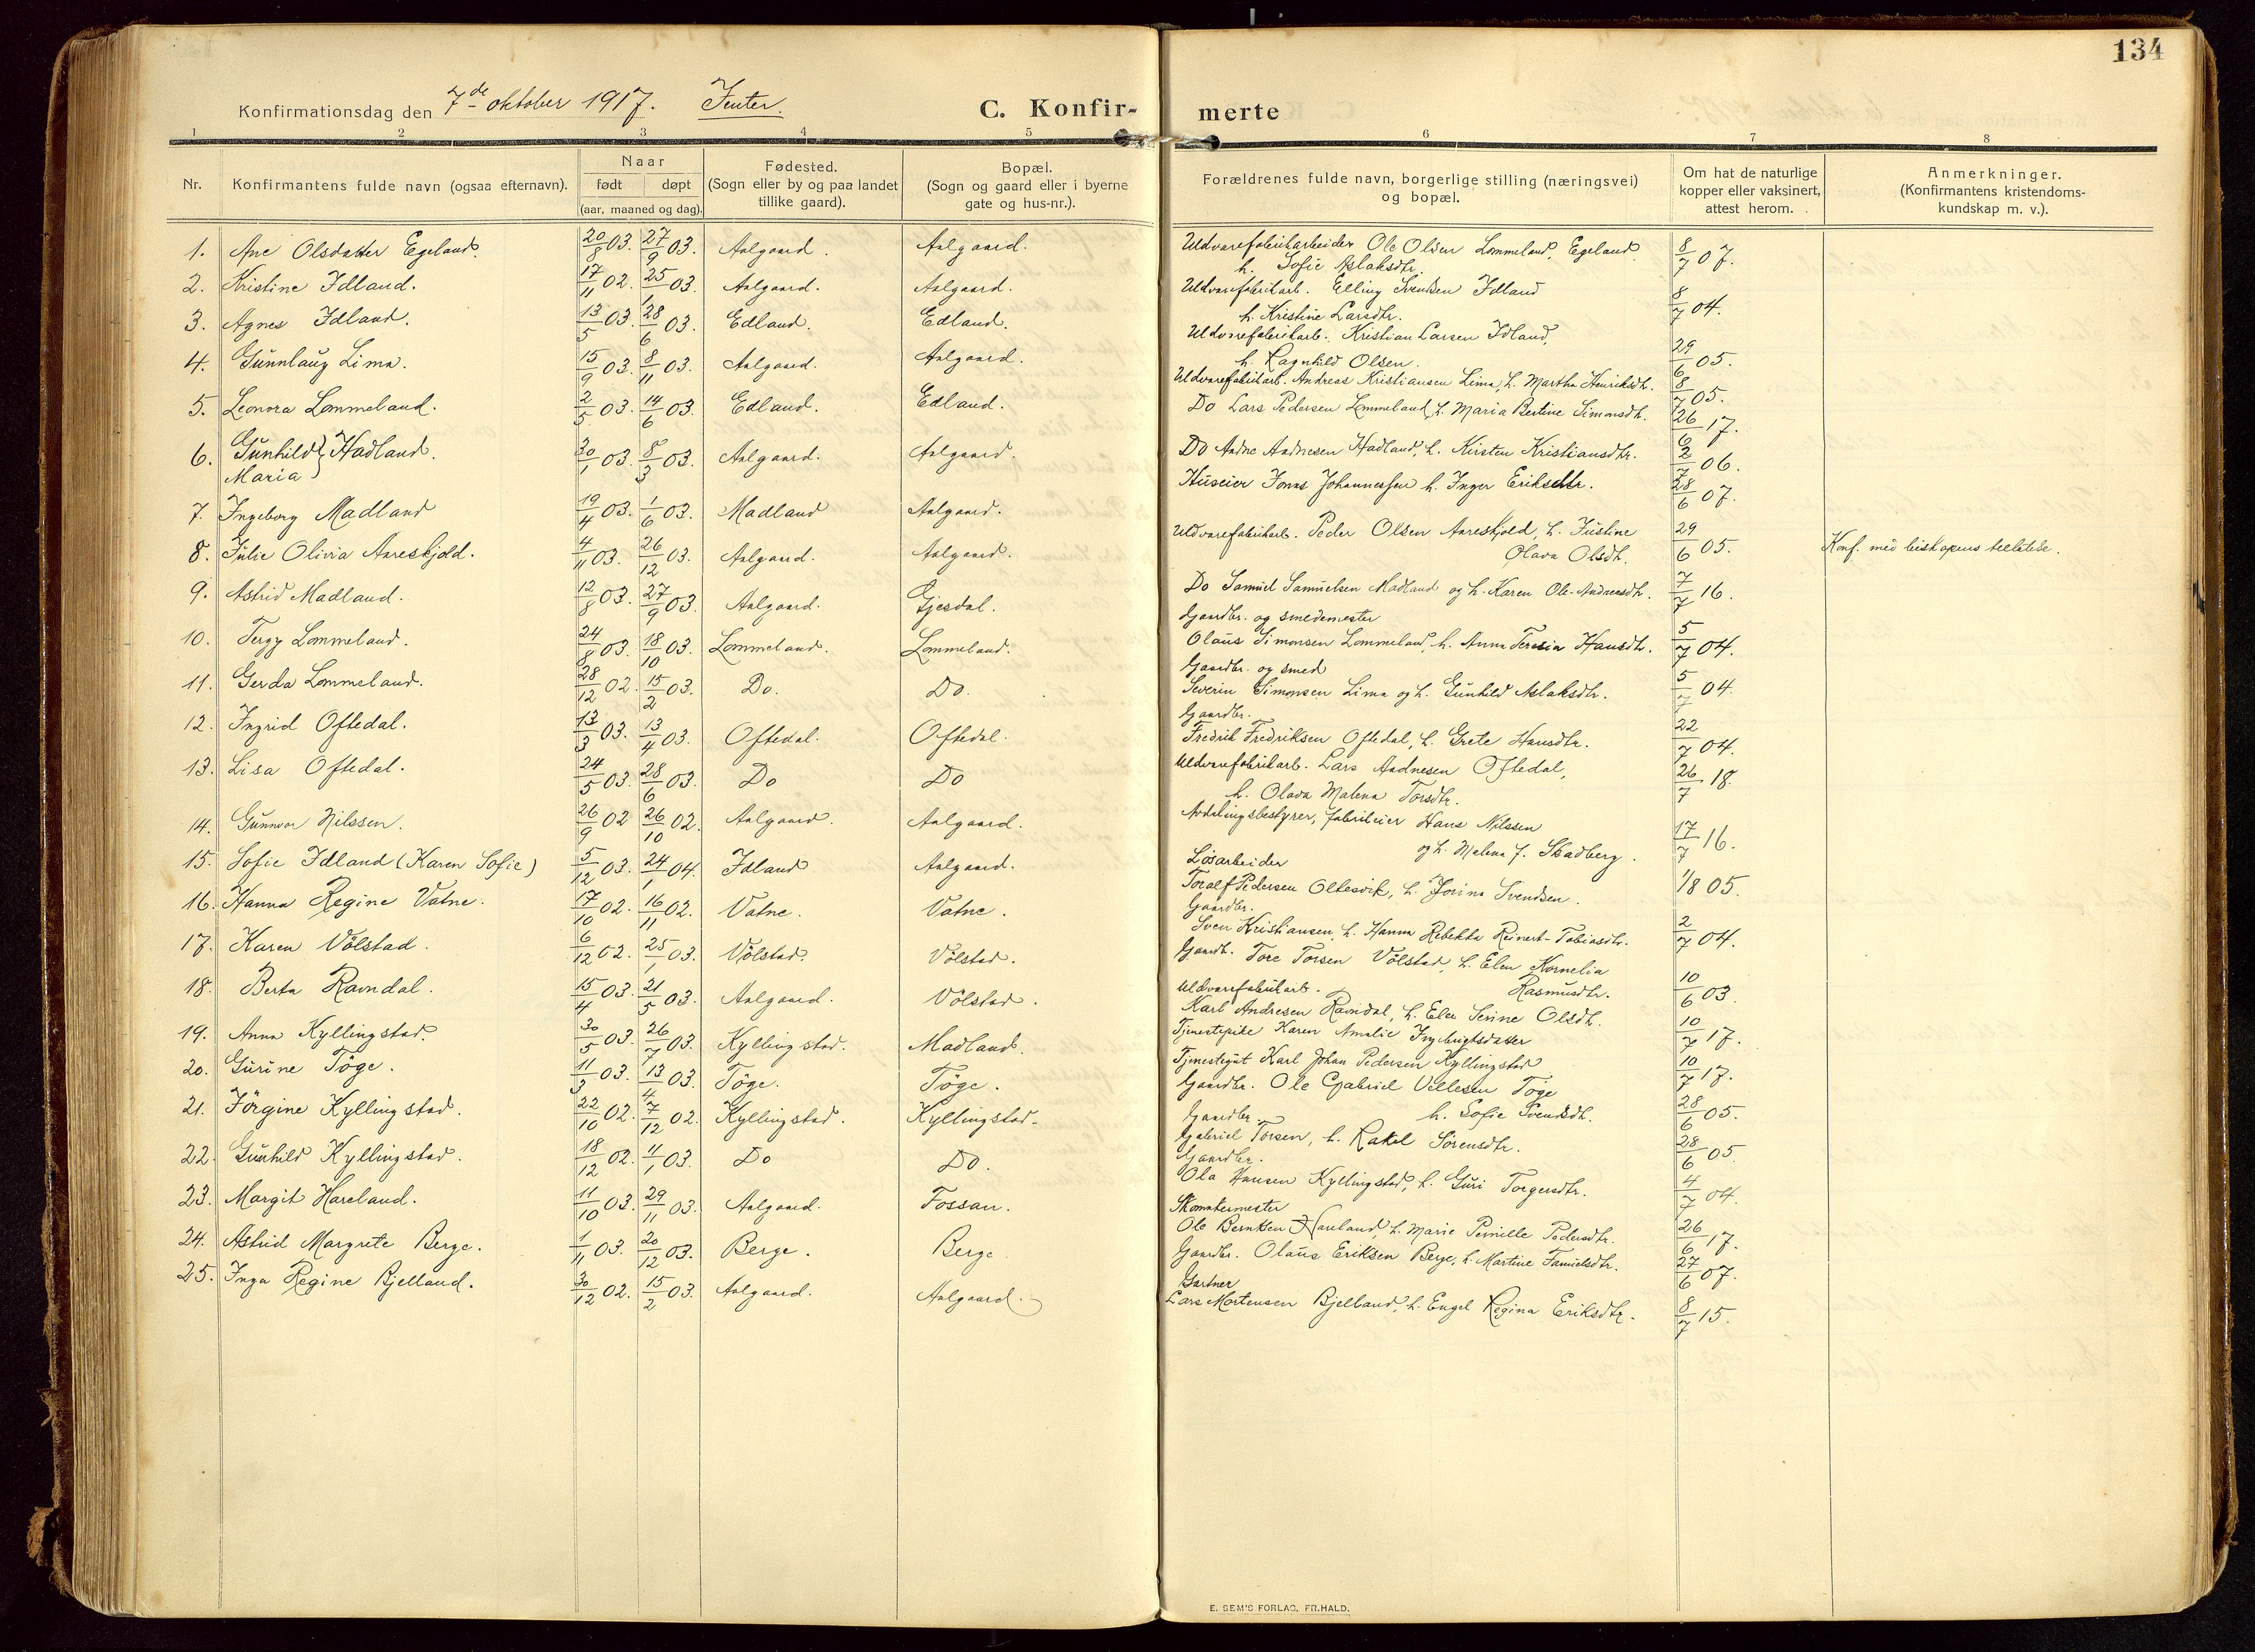 134
Konfirmationsdag den 7de oktober 1917. Jenter.
C. Konfir-
merte
1 2 3 4 5 6 7 8
Nr.
Konfirmantens fulde navn (ogsaa efternavn).
Naar
født
døpt
(aar, maaned og dag).
Fødested.
(Sogn eller by og paa landet
tillike gaard).
Bopæl.
(Sogn og gaard eller i byerne
gate og hus-nr.).
Forældrenes fulde navn, borgerlige stilling (næringsvei)
og bopæl.
Om hat de naturlige
kopper eller vaksinert,
attest herom.
Anmerkninger.
(Konfirmantens kristendoms-
kundskap m. v.).
1. Ane Olsdatter Egeland. 20/8 03. 27/9 03. Aalgaard. Aalgaard. Uldvarefabrikarbeider Ole Olsen Lommeland, Egeland 8/7 07.
h. Sofie Aslaksdtr.
2. Kristine Idland. 17/11 02. 25/1 03. Aalgaard. Aalgaard. Uldvarefabrikarb. Elling Svendsen Idland 8/7 04.
h. Kristine Larsdtr.
3. Agnes Idland. 13/5 03. 28/6 03. Edland. Edland. Uldvarefabrikarb. Kristian Larsen Idland, 29/6 05.
h. Ragnhild Olsen.
4. Gunnlaug Lima. 15/9 03. 8/11 03. Aalgaard. Aalgaard. Uldvarefabrikarb. Andreas Kristiansen Lima, h. Martha Henriksdt. 8/7 05.
5. Leonora Lommeland. 2/5 03. 14/6 03. Edland. Edland. Do Lars Pedersen Lommeland, h. Maria Bertine Simonsdt. 26/6 17.
6. Gunhild Maria } Hadland. 30/1 03. 8/3 03. Aalgaard. Aalgaard. Do Andne Andnesen Hadland, h. Kirsten Kristiansdtr. 2/7 06.
7. Ingeborg Madland 19/4 03. 1/6 03. Madland Aalgaard. Huseier Jonas Johannessen h. Inger Eriksdtr. 28/6 07.
8. Julie Olivia Aareskjold. 4/11 03. 26/12 03. Aalgaard. Aalgaard. Uldvarefabrikarb. Peder Olsen Aareskjold, h. Justine 29/6 05. Konf. med biskopens tillatelse.
Olava Olsdt.
9. Astrid Madland. 12/8 03. 27/9 03. Aalgaard. Gjesdal. Do Samuel Samuelsen Madland og h. Karen Ole-Andreasdt. 7/7 16.
10. Tergy Lommeland. 24/8 03. 18/10 03. Lommeland. Lommeland. Gaardbr. og smedemester
Olaus Simonsen Lommeland, h. Anna Teresia Hansdtr. 5/7 04.
11. Gerda Lommeland. 28/12 02. 15/2 03. Do. Do. Gaardbr. og smed
Severin Simonsen Lima og h. Gunhild Aslaksdtr. 5/7 04.
12. Ingrid Oftedal. 13/3 03. 13/4 03. Oftedal. Oftedal. Gaardbr.
Fredrik Fredriksen Oftedal, h. Grete Hansdtr. 22/7 04.
13. Lisa Oftedal. 24/5 03. 28/6 03. Do Do Uldvarefabrikarb. Lars Andnesen Oftedal, 26/7 18.
h. Olava Malena Torsdtr.
14. Gunnvor Nilssen. 26/9 02 26/10 02. Aalgaard. Aalgaard. Avdelingsbestyrer, fabrikeier Hans Nilssen 17/7 16.
og h. Malena f. Skadberg.
15. Sofie Idland (Karen Sofie) 5/12 03. 24/1 04. Idland Aalgaard. Løsarbeider
Toralf Pedersen Oltesvik, h. Jorina Svendsen. 1/8 05.
16. Hanna Regine Vatne. 17/10 02. 16/11 02. Vatne. Vatne. Gaardbr.
Sven Kristiansen, h. Hanna Rebekka Reinert-Tobiasdtr. 2/7 04.
17. Karen Völstad. 6/12 02. 25/1 03. Völstad. Völstad. Gaardb. Tore Torsen Völstad, h. Elen Kornelia 10/6 03.
Rasmusdtr.
18. Berta Ravndal. 15/4 03. 21/5 03. Aalgaard. Völstad. Uldvarefabrikarb.
Karl Andresen Ravndal, h. Elen Serine Olsdt. 10/7 17.
19. Anna Kyllingstad. 30/5 03. 26/7 03. Kyllingstad. Madland. Tjenestepike Karen Amalie Ingebrigtsdatter
Tjenestegut Karl Johan Pedersen Kyllingstad 10/7 17.
20. Gurine Töge. 11/3 03. 13/4 03. Töge. Töge. Gaardbr. Ole Gabriel Vellesen Töge 28/6 05.
h. Sofie Svendsdt.
21. Jörgine Kyllingstad. 22/10 02. 7/12 02. Kyllingstad. Kyllingstad. Gaardbr.
Gabriel Torsen, h. Rakel Sörensdtr. 28/6 05.
22. Gunhild Kyllingstad. 18/12 02. 11/1 03. Do Do. Gaardbr.
Ola Hansen Kyllingstad, h. Guri Torgersdtr. 4/7 04.
23. Margit Hareland. 11/10 03. 29/11 03. Aalgaard. Fossan. Skomakermester
Ole Berntsen Hareland, h. Marie Pernille Pedersdtr. 26/6 17.
24. Astrid Margrete Berge. 1/11 03. 20/12 03. Berge. Berge. Gaardbr. Olaus Eriksen Berge, h. Martine Samuelsdtr. 27/6 07.
25. Inga Regine Bjelland. 30/12 02. 15/2 03. Aalgaard. Aalgaard. Gartner
Lars Mortensen Bjelland, h. Engel Regina Eriksdtr. 8/7 15.
E. SEM'S FORLAG, FR.HALD.